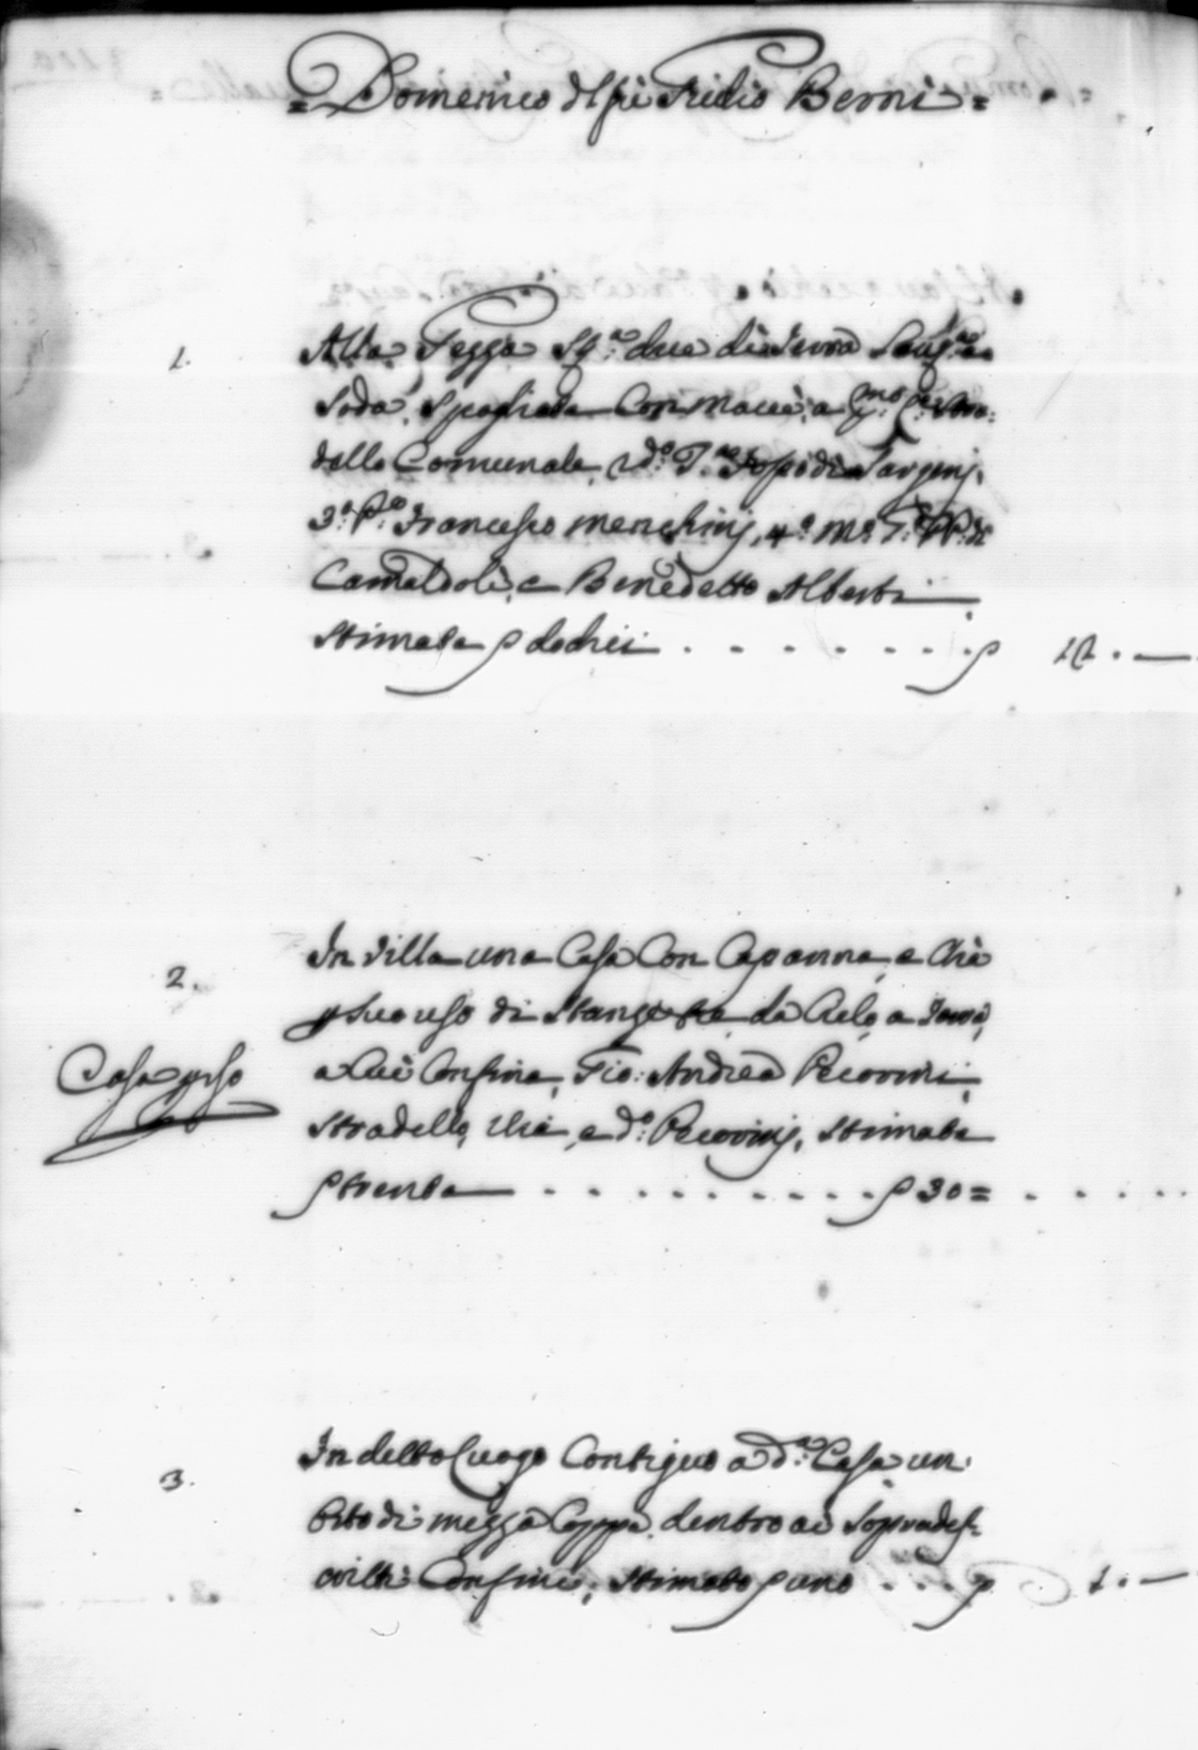 = Domenico dl fù Fidio Berni =
1.
Alla Pezza St.ª due di Terra Lavg.ª e
Soda, Spogliata Con Macciè, a p.mo
dello Comunale, 2do T.
3.º P.º Francesco Menichinj, 4.º M.º PP. di
Camaldoli, e Benedetto Alberti
Stimata p dodici . . . . . . . p 12 . —
2.
In Villa una Casa Con Capanna, e Chè
p Suo uso di Stanze tre da Cielo a Terra,
Casa p uso
a Cui Confina, Gio: Andrea Pecorini,
Stradello, e d.º Pecorinj, Stimata
p trenta . . . . . . . . . . p 30 = . . . .
3.
In detto Luogo Contiguo a d.ª Casa un
Orto di mezza Coppa dentro ai Sopradesc
critti Confini, Stimato p uno . . . p 1. —